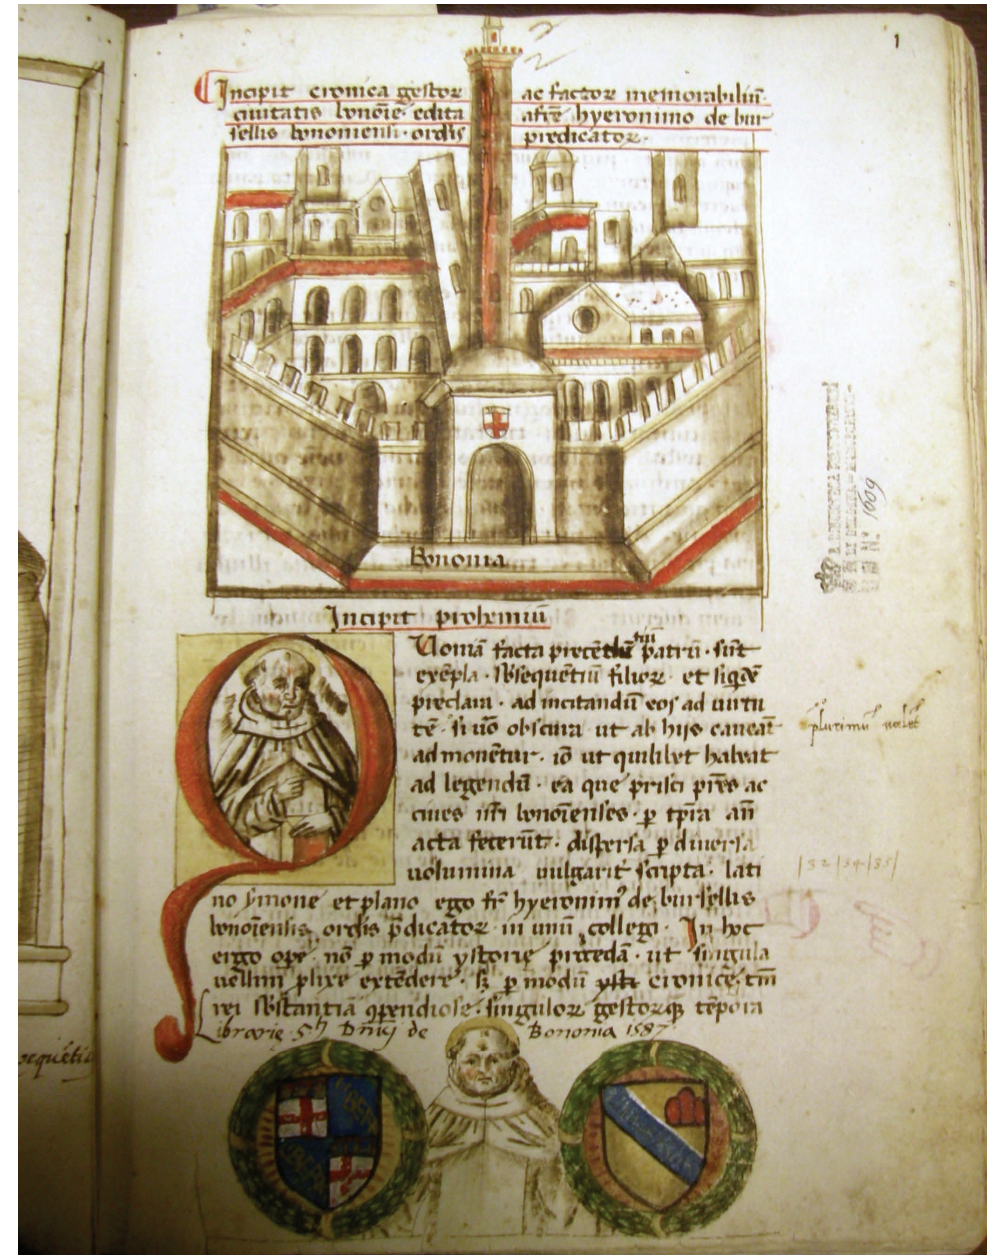 1
Incipit cronica gestor ac factor memorabiliū
ciuitatis bonoīe edita a frē hyeronimo de bur
sellis bononiensi ordīs predicator
Bononia
Incipit prohemiū
Quoniā facta precedētiū patrū sūt
exēpla sbsequētiū filior et siqdē
preclara ad incitandū eos ad uirtu
tē si uō obscura ut ab hijs caueāt
admonētur iō ut quilibet habeat
ad legendū ea que prisci prēs ac
ciues nrī bonoiēnses p tpīa añ
acta fecerūt dispersa p diuersa
uolumina uulgarit scripta lati
no smone et plano ego fr hyeronim9 de bursellis
bonoiēnsis ordīs pdicator in unū collegi In hoc
ergo ope nō p modū ystorie procedā ut singula
uellim plixe extēdere sz p modū cronice tm̄
rei sbstantiā qpendiose singulor gestorqz tēpora
Librarie Sti Dnīci de Bononia 1587
plurimū ualēt
|32|34|35|
R. BIBLIOTECA
DI BOLOGNA
N.° 1609
sequētia
LIBERTAS
LIBERTAS
LIBERTAS